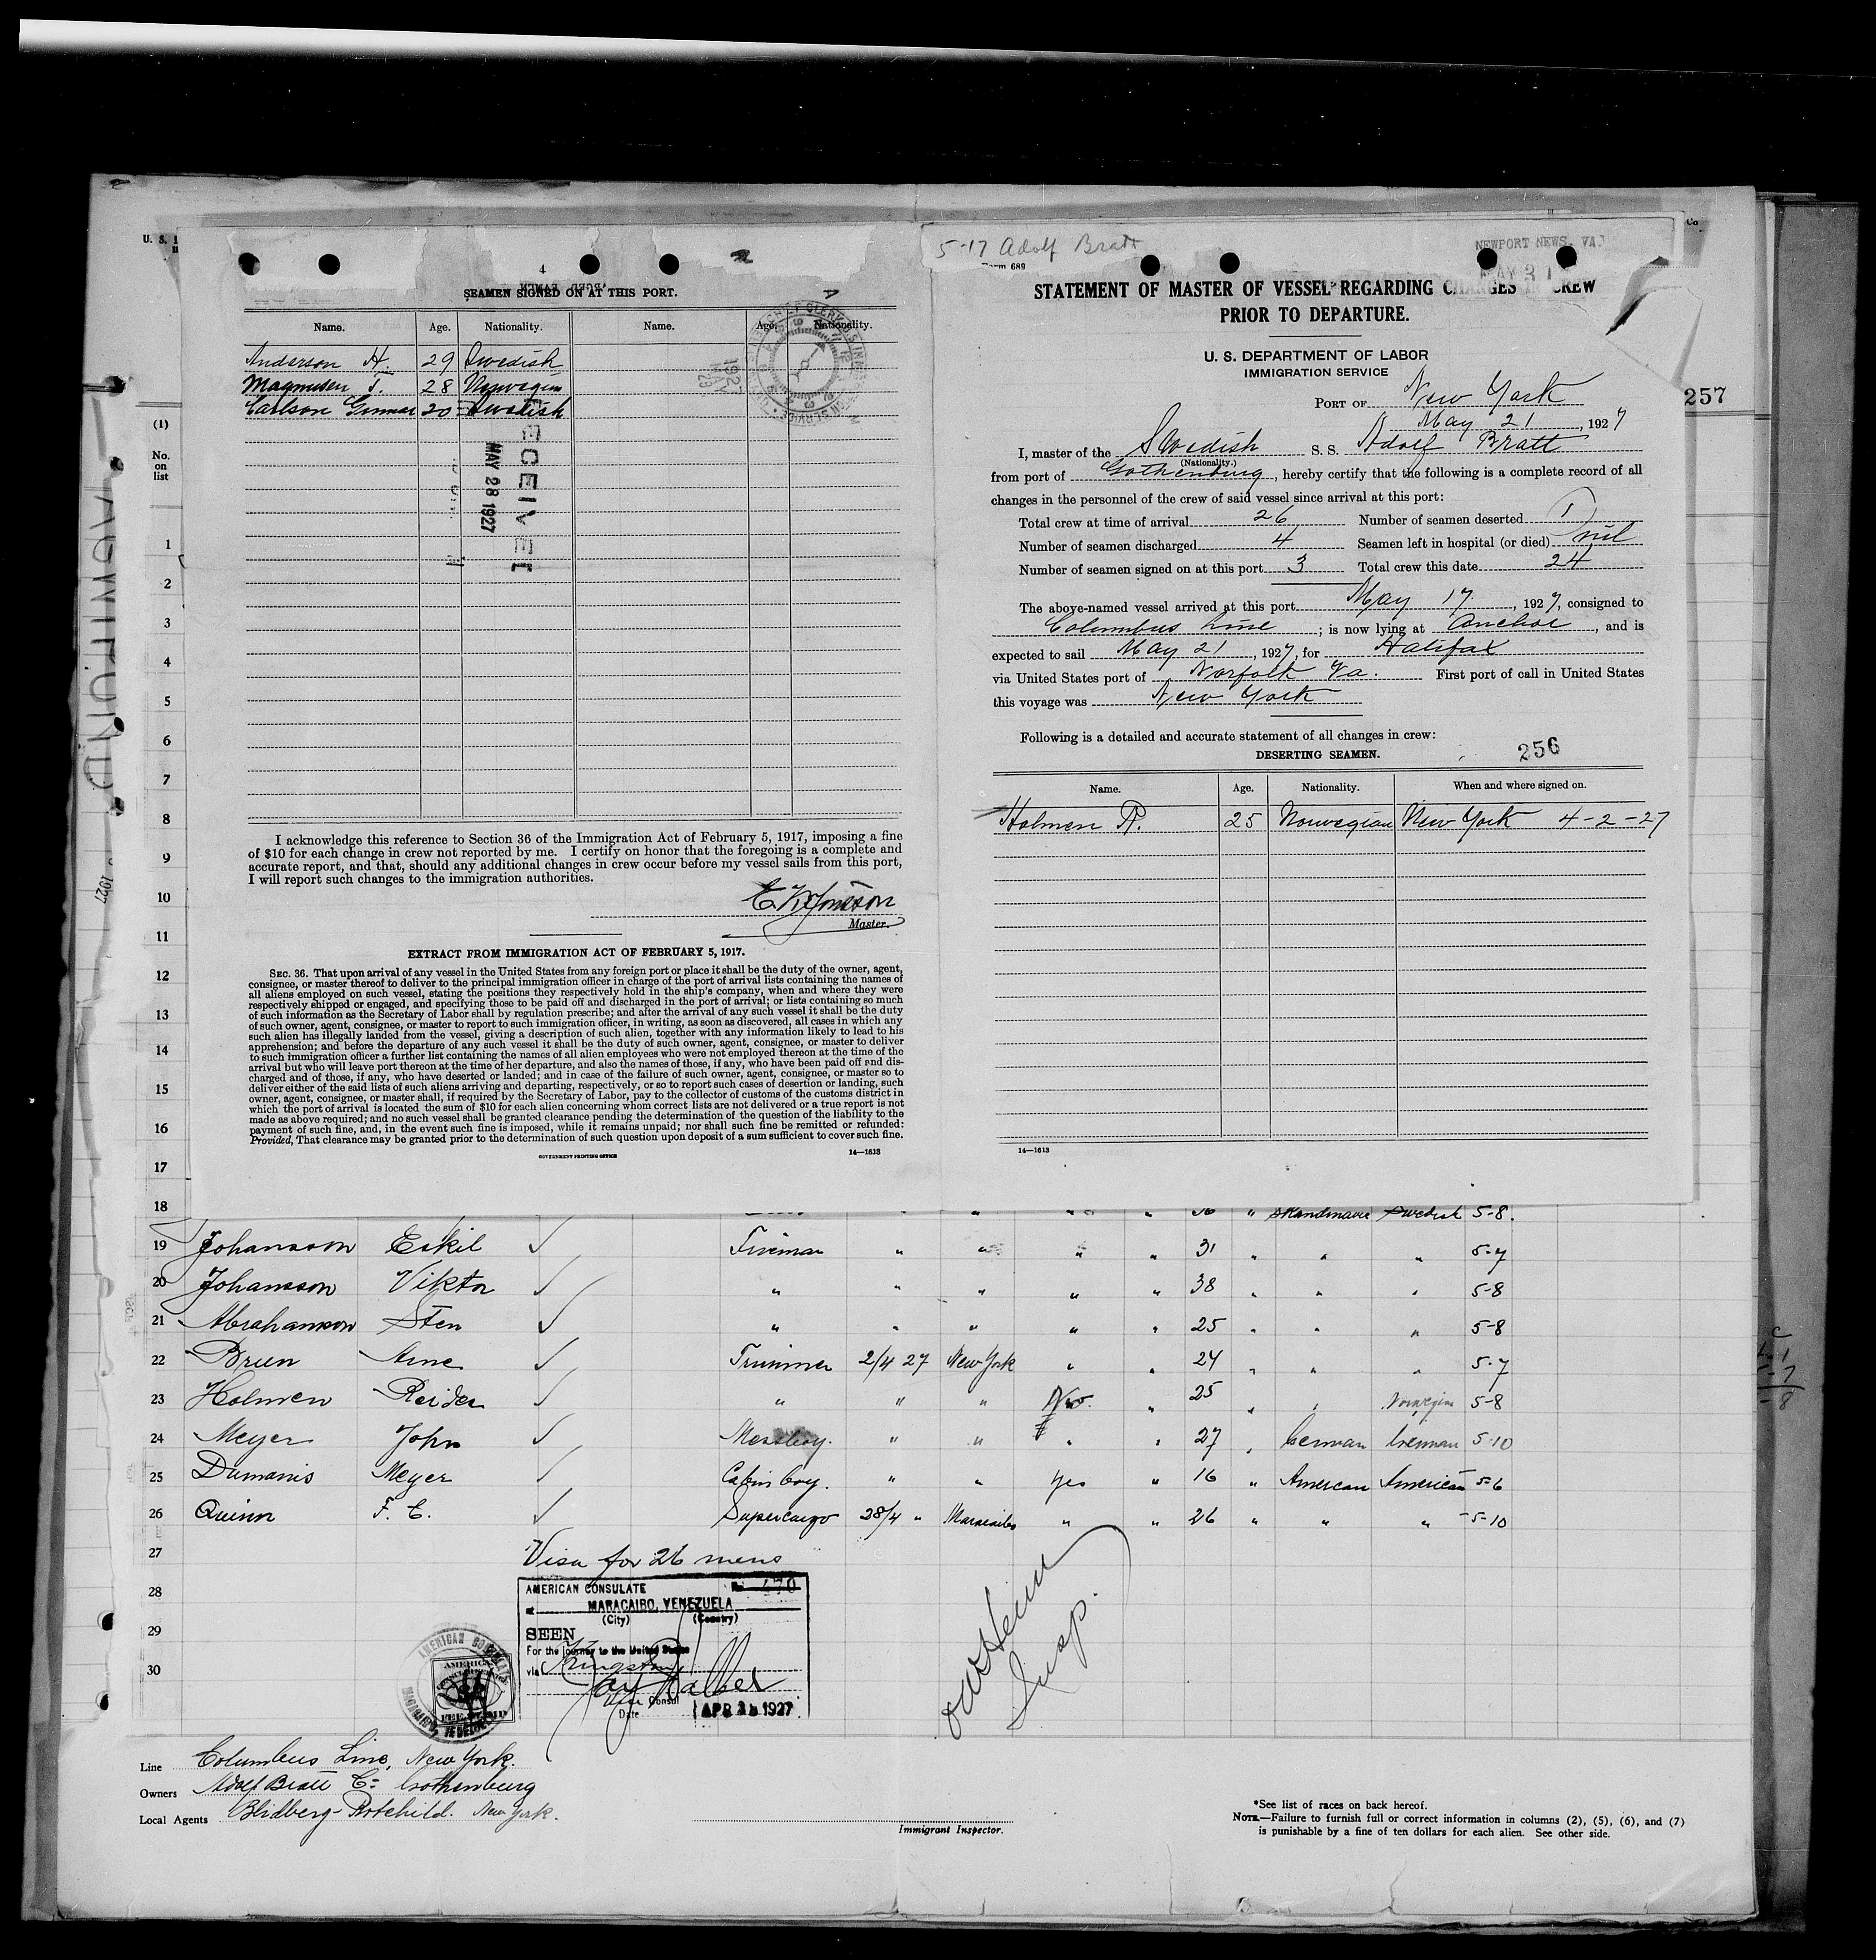 U. S. 
Co
257
4
SEAMEN SIGNED ON AT THIS PORT.
Name. Age. Nationality. Name. Age. Nationality.
Anderson H. 29 Swedish
Magnusen T. 28 Norwegian
Carlson Gunnar 20 Swedish
RECEIVED
MAY 28 1927
I acknowledge this reference to Section 36 of the Immigration Act of February 5, 1917, imposing a fine
of $10 for each change in crew not reported by me. I certify on honor that the foregoing is a complete and
accurate report, and that, should any additional changes in crew occur before my vessel sails from this port,
I will report such changes to the immigration authorities.
Master.
EXTRACT FROM IMMIGRATION ACT OF FEBRUARY 5, 1917.
SEC. 36. That upon arrival of any vessel in the United States from any foreign port or place it shall be the duty of the owner, agent,
consignee, or master thereof to deliver to the principal immigration officer in charge of the port of arrival lists containing the names of
all aliens employed on such vessel, stating the positions they respectively hold in the ship's company, when and where they were
respectively shipped or engaged, and specifying those to be paid off and discharged in the port of arrival; or lists containing so much
of such information as the Secretary of Labor shall by regulation prescribe; and after the arrival of any such vessel it shall be the duty
of such owner, agent, consignee, or master to report to such immigration officer, in writing, as soon as discovered, all cases in which any
such alien has illegally landed from the vessel, giving a description of such alien, together with any information likely to lead to his
apprehension; and before the departure of any such vessel it shall be the duty of such owner, agent, consignee, or master to deliver
to such immigration officer a further list containing the names of all alien employees who were not employed thereon at the time of the
arrival but who will leave port thereon at the time of her departure, and also the names of those, if any, who have been paid off and dis-
charged and of those, if any, who have deserted or landed; and in case of the failure of such owner, agent, consignee, or master so to
deliver either of the said lists of such aliens arriving and departing, respectively, or so to report such cases of desertion or landing, such
owner, agent, consignee, or master shall, if required by the Secretary of Labor, pay to the collector of customs of the customs district in
which the port of arrival is located the sum of $10 for each alien concerning whom correct lists are not delivered or a true report is not
made as above required; and no such vessel shall be granted clearance pending the determination of the question of the liability to the
payment of such fine, and, in the event such fine is imposed, while it remains unpaid; nor shall such fine be remitted or refunded:
Provided, That clearance may be granted prior to the determination of such question upon deposit of a sum sufficient to cover such fine.
GOVERNMENT PRINTING OFFICE 14—1613
5-17 Adolf Bratt
NEWPORT NEWS, VA.
Form 689
STATEMENT OF MASTER OF VESSEL REGARDING CHANGES IN CREW
PRIOR TO DEPARTURE.
U. S. DEPARTMENT OF LABOR
IMMIGRATION SERVICE
PORT OF New York
May 21, 1927
I, master of the Swedish S. S. Adolf Bratt
(Nationality.)
from port of Gothenburg, hereby certify that the following is a complete record of all
changes in the personnel of the crew of said vessel since arrival at this port:
Total crew at time of arrival 26 Number of seamen deserted 1
Number of seamen discharged 4 Seamen left in hospital (or died) nil
Number of seamen signed on at this port 3 Total crew this date 24
The above-named vessel arrived at this port May 17, 1927, consigned to
Columbus Line; is now lying at Anchor, and is
expected to sail May 21, 1927, for Halifax
via United States port of Norfolk Va. First port of call in United States
this voyage was New York
Following is a detailed and accurate statement of all changes in crew:
DESERTING SEAMEN. 256
Name. Age. Nationality. When and where signed on.
Holmen R. 25 Norwegian New York 4-2-27
14—1613
(1)
No.
on
list
1
2
3
4
5
6
7
8
9
10
11
12
13
14
15
16
17
18 36 " Skandinavie Swedish 5-8.
19 Johansson Eskil Fireman " " " " 31 " " " 5-7
20 Johansson Viktor " " " " " 38 " " " 5-8
21 Abrahamson Sten " " " " " 25 " " " 5-8
22 Brun Arne Trimmer 2/4 27 New York " " 24 " " " 5-7
23 Holmen Reidar " " " No " 25 " " Norwegian 5-8
24 Meyer John Messboy. " " " " 27 " German German 5-10
25 Dumanis Meyer Cabin boy. " " Yes " 16 " American American 5-6
26 Quinn F. C. Supercargo 28/4 " Maracaibo " " 26 " " " 5-10
27 Visa for 26 mens
28
29
30
AMERICAN CONSULATE
MARACAIBO, VENEZUELA
(City) (Country)
SEEN
For the journey to the United States
via Kingston
Vice Consul
Date APR 1927
Insp.
Line Columbus Line, New York.
Owners Adolf Bratt Co Gothenburg
Local Agents Blidberg-Rotchild. New York.
Immigrant Inspector.
*See list of races on back hereof.
NOTE.—Failure to furnish full or correct information in columns (2), (5), (6), and (7)
is punishable by a fine of ten dollars for each alien. See other side.